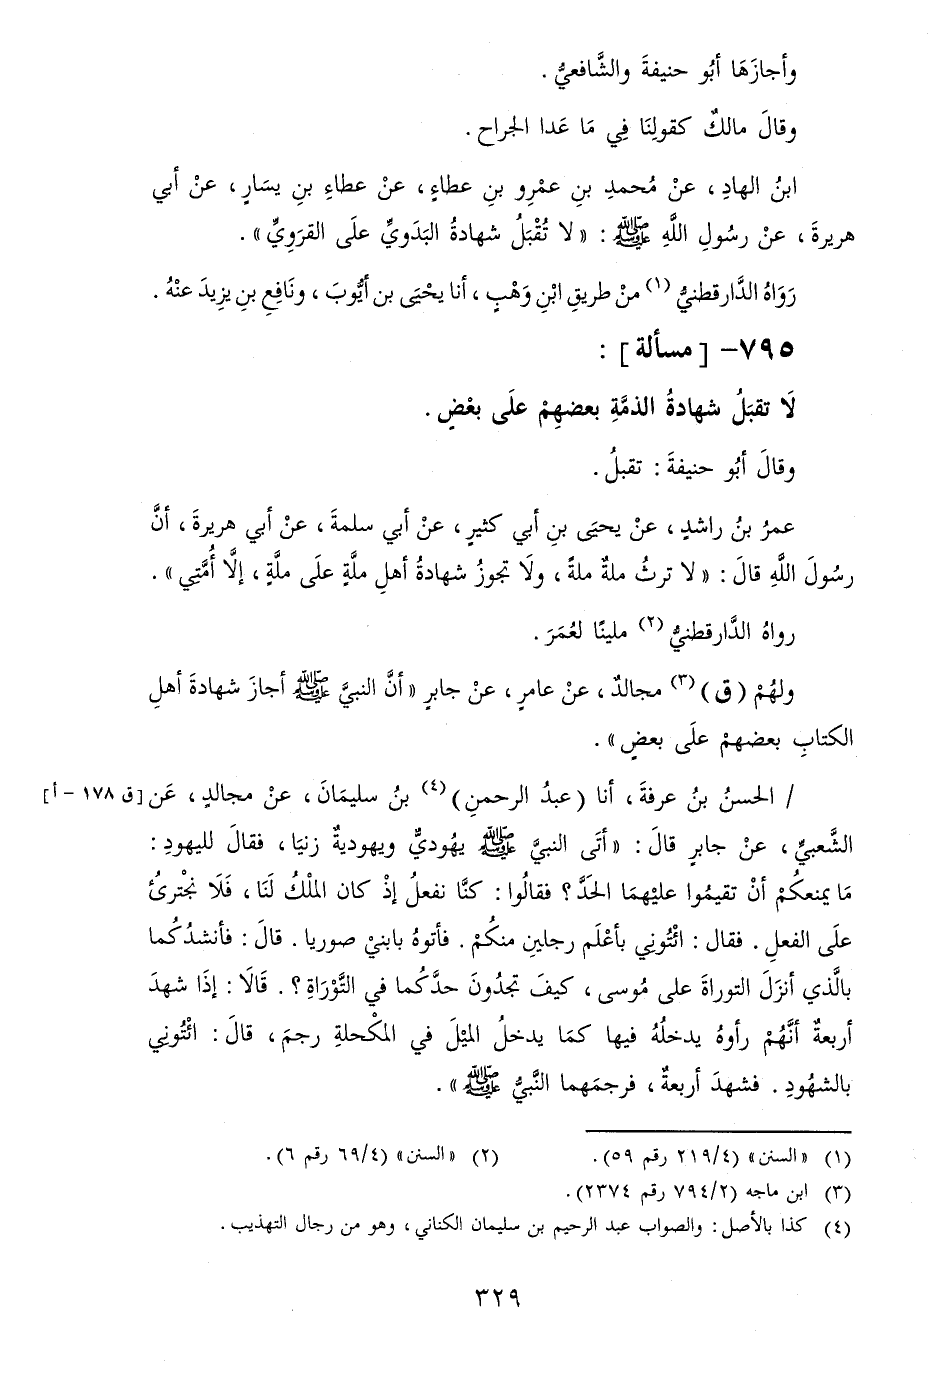 وأجازَهَا أبُو حنيفةَ والشَّافعيُّ .
وقالَ مالكٌ كقولِنَا فِي مَا عَدا الجراح .
ابنُ الهادِ ، عنْ مُحمدِ بنِ عمْرِو بنِ عطاءٍ ، عنْ عطاءِ بنِ يسَارٍ ، عنْ أبي
هريرةَ ، عنْ رسُولِ اللَّهِ ﷺ : « لا تُقْبَلُ شهادةُ البَدَويِّ علَى القرَوِيِّ » .
رَوَاهُ الدَّارقطنيُّ (١) منْ طريقِ ابْنِ وَهْبٍ ، أنا يحْيَى بن أيُّوبَ ، ونَافِعِ بنِ يزِيدَ عنْهُ .
٧٩٥- [ مسألة ] :
لَا تقبَلُ شهادةُ الذمَّةِ بعضهِمْ علَى بعْضٍ .
وقالَ أبُو حنيفةَ : تقبلُ .
عمرُ بنُ راشدٍ ، عنْ يحيَى بنِ أبي كثيرٍ ، عنْ أبي سلمةَ ، عنْ أبي هريرةَ ، أنَّ
رسُولَ اللَّهِ قالَ : « لا ترثُ ملةٌ ملةً ، ولَا تجوزُ شهادةُ أهلِ ملَّةٍ علَى ملَّةٍ ، إلَّا أُمَّتِي » .
رواهُ الدَّارقطنيُّ (٢) ملينًا لعُمَرَ .
ولهُمْ ( ق ) (٣) مجالدٌ ، عنْ عامرٍ ، عنْ جابرٍ « أنَّ النبيَّ ﷺ أجازَ شهادةَ أهلِ
الكتابِ بعضهمْ علَى بعضٍ » .
/ الحسنُ بنُ عرفةَ ، أنا ( عبدُ الرحمنِ ) (٤) بنُ سليمَانَ ، عنْ مجالدٍ ، عَن [ق ١٧٨ - أ]
الشَّعبيِّ ، عنْ جابرٍ قالَ : « أتَى النبيَّ ﷺ يهُوديٌّ ويهوديةٌ زنيَا ، فقالَ لليهودِ :
مَا يمنعكُمْ أنْ تقيمُوا عليْهمَا الحَدَّ ؟ فقالُوا : كنَّا نفعلُ إذْ كان الملْكُ لنَا ، فَلَا نجْترئُ
علَى الفعلِ . فقال : ائْتُونِي بأعْلَم رجلينِ منكُمْ . فأتوهُ بابنيْ صوريا . قالَ : فأنشدُكُما
بالَّذي أنزَلَ التوراةَ على مُوسى ، كيفَ تجدُونَ حدَّكُما في التَّوْرَاةِ ؟ . قَالَا : إذَا شهدَ
أربعةٌ أنَّهُمْ رأوهُ يدخلُهُ فيها كمَا يدخلُ الميْلَ في المكْحلةِ رجمَ ، قالَ : ائْتُوني
بالشهُودِ . فشهدَ أربعةٌ ، فرجمَهما النَّبيُّ ﷺ » .
(١) « السنن » (٤/ ٢١٩ رقم ٥٩). (٢) « السنن » (٤/ ٦٩ رقم ٦).
(٣) ابن ماجه (٢/ ٧٩٤ رقم ٢٣٧٤).
(٤) كذا بالأصل : والصواب عبد الرحيم بن سليمان الكناني ، وهو من رجال التهذيب .
٣٢٩